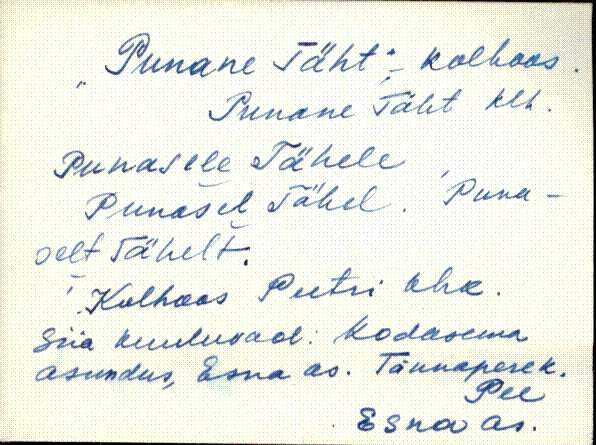 „Punane Täht" - kolhoos.
Punane Täht klh.
Punasele Tähele
Punasel Tähel. Puna-
selt Tähelt.
Kolhoos Peetri khk.
Siia kuuluvad: Kodasema
asundus, Esna as. Tännapere k.
Pee
Esna as.